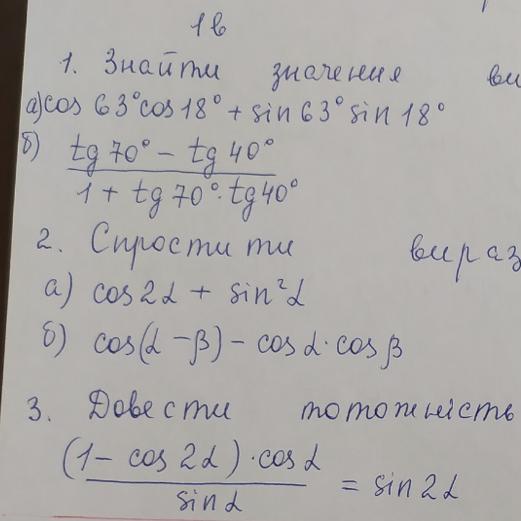 1в
1. Знайти значення ви
а) cos 63° cos 18° + sin 63° sin 18°
б) tg 70° - tg 40°
1 + tg 70° · tg 40°
2. Спростити вираз
а) cos 2α + sin²α
б) cos(α - β) - cos α · cos β
3. Довести тотожність
(1 - cos 2α) · cos α
sin α = sin 2α